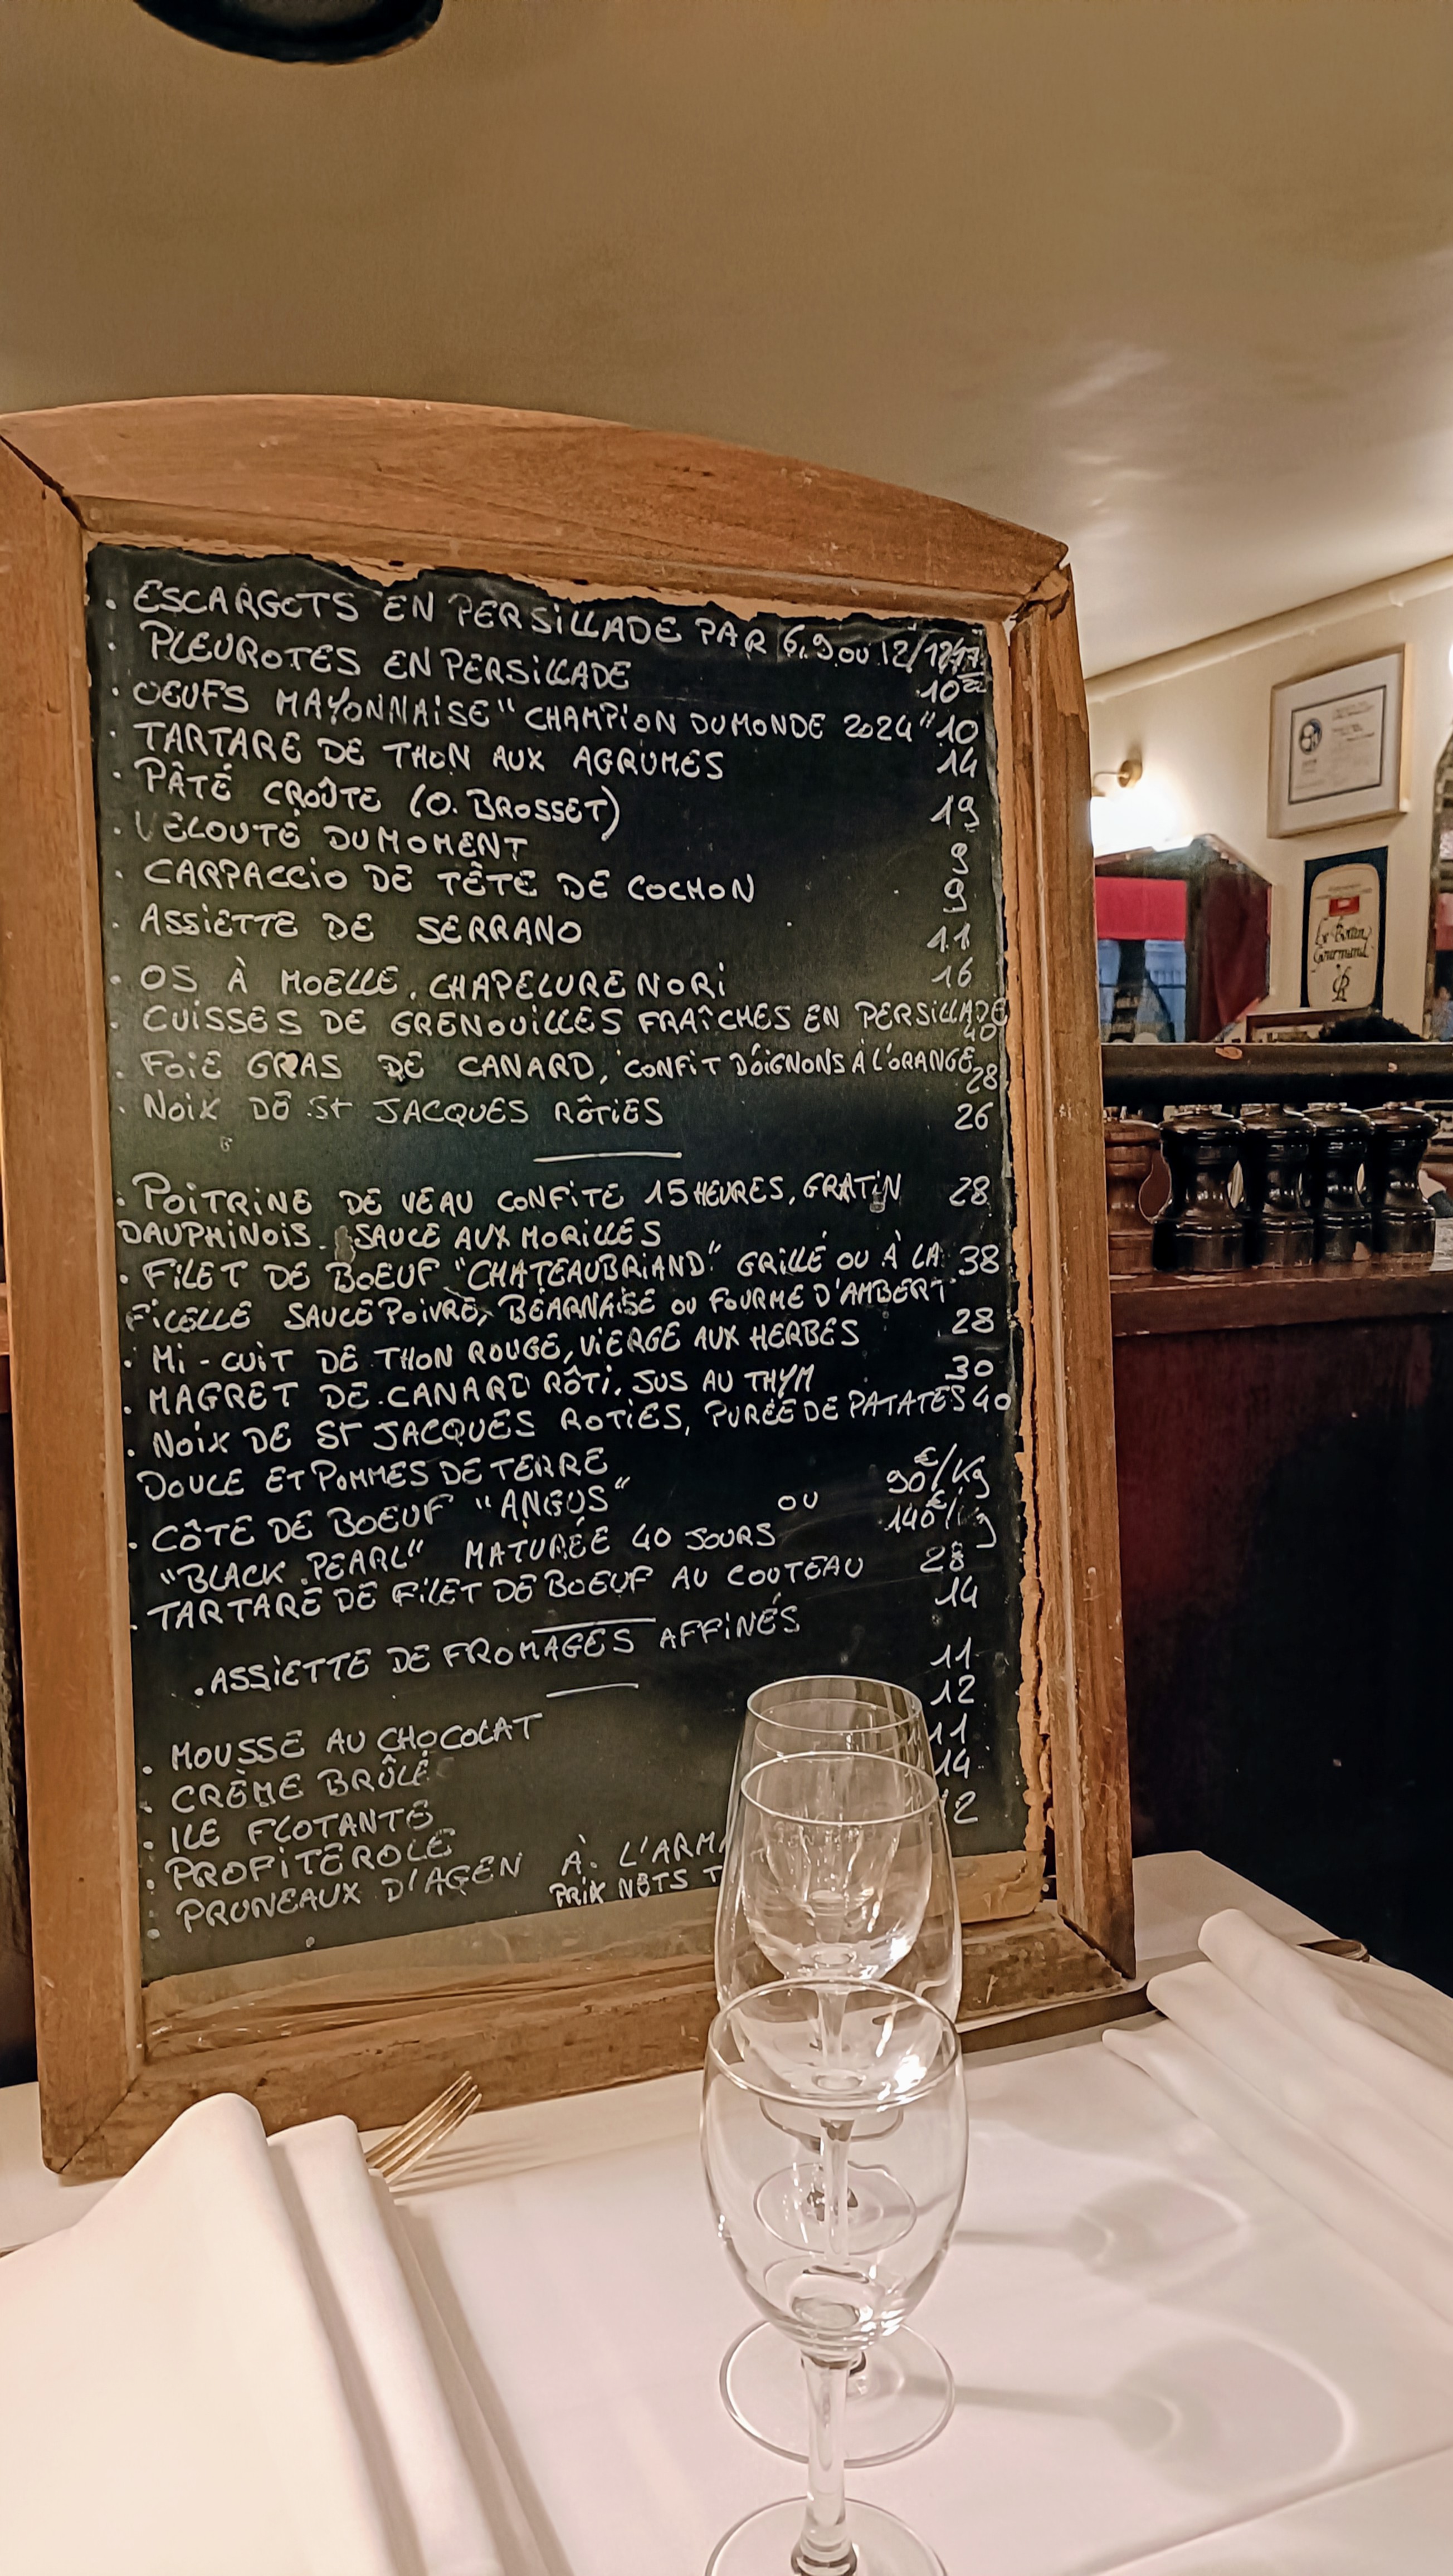 . ESCARGOTS EN PERSILLADE PAR 6,9 OU 12/
. PLEUROTES EN PERSILLADE 10
. OEUFS MAYONNAISE "CHAMPION DU MONDE 2024" 10
. TARTARE DE THON AUX AGRUMES 14
. PÂTÉ CROÛTE (O. BROSSET) 19
. VELOUTÉ DU MOMENT 9
. CARPACCIO DE TÊTE DE COCHON 9
. ASSIETTE DE SERRANO 11
. OS À MOELLE, CHAPELURE NORI 16
. CUISSES DE GRENOUILLES FRAÎCHES EN PERSILLADE 40
. FOIE GRAS DE CANARD, CONFIT D'OIGNONS À L'ORANGE 28
. NOIX DE St JACQUES RÔTIES 26
. POITRINE DE VEAU CONFITE 15 HEURES, GRATIN 28
DAUPHINOIS. SAUCE AUX MORILLES
. FILET DE BOEUF "CHATEAUBRIAND" GRILLÉ OU À LA 38
FICELLE SAUCE POIVRE, BÉARNAISE OU FOURME D'AMBERT
. MI-CUIT DE THON ROUGE, VIERGE AUX HERBES 28
. MAGRET DE CANARD RÔTI, JUS AU THYM 30
. NOIX DE ST JACQUES ROTIES, PURÉE DE PATATES 40
DOUCE ET POMMES DE TERRE
. CÔTE DE BOEUF "ANGUS" OU 90€/Kg
"BLACK PEARL" MATURÉE 40 JOURS 140€/Kg
. TARTARE DE FILET DE BOEUF AU COUTEAU 28
. ASSIETTE DE FROMAGES AFFINÉS 14
. MOUSSE AU CHOCOLAT 11
. CRÈME BRÛLÉ 12
. ILE FLOTANTE 11
. PROFITEROLE 14
. PRUNEAUX D'AGEN À L'ARMA 12
PRIX NETS T
Le Bottin
Gourmand